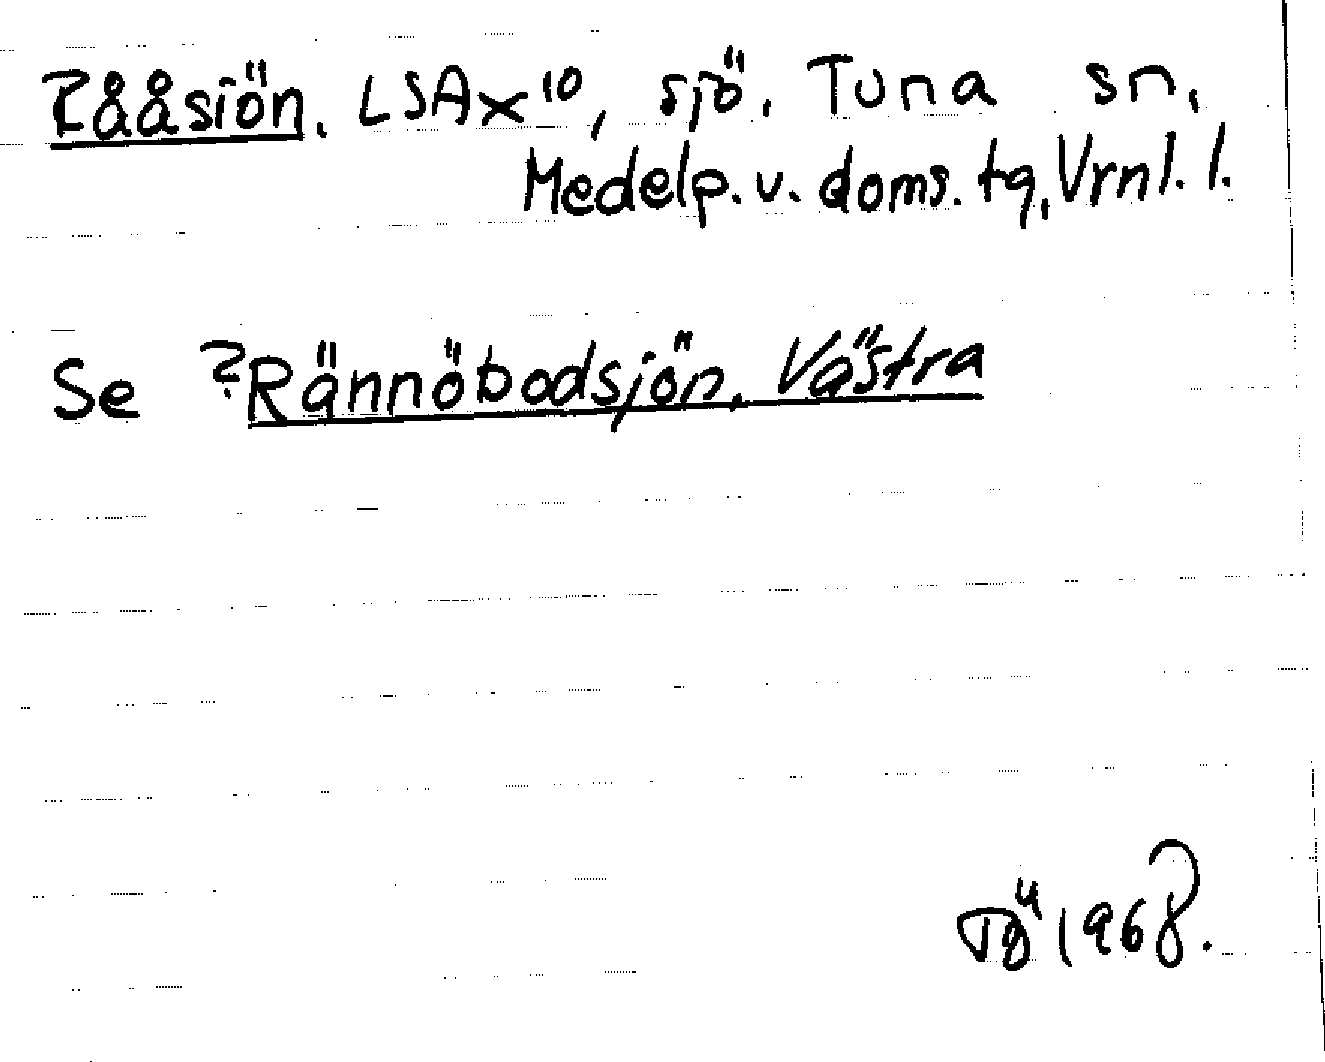 Rååsiön. LSA x 10, sjö. Tuna sn,
Medelp. v. doms. tg, Vrnl. l.
Se ?Rännöbodsjön. Västra
1968.